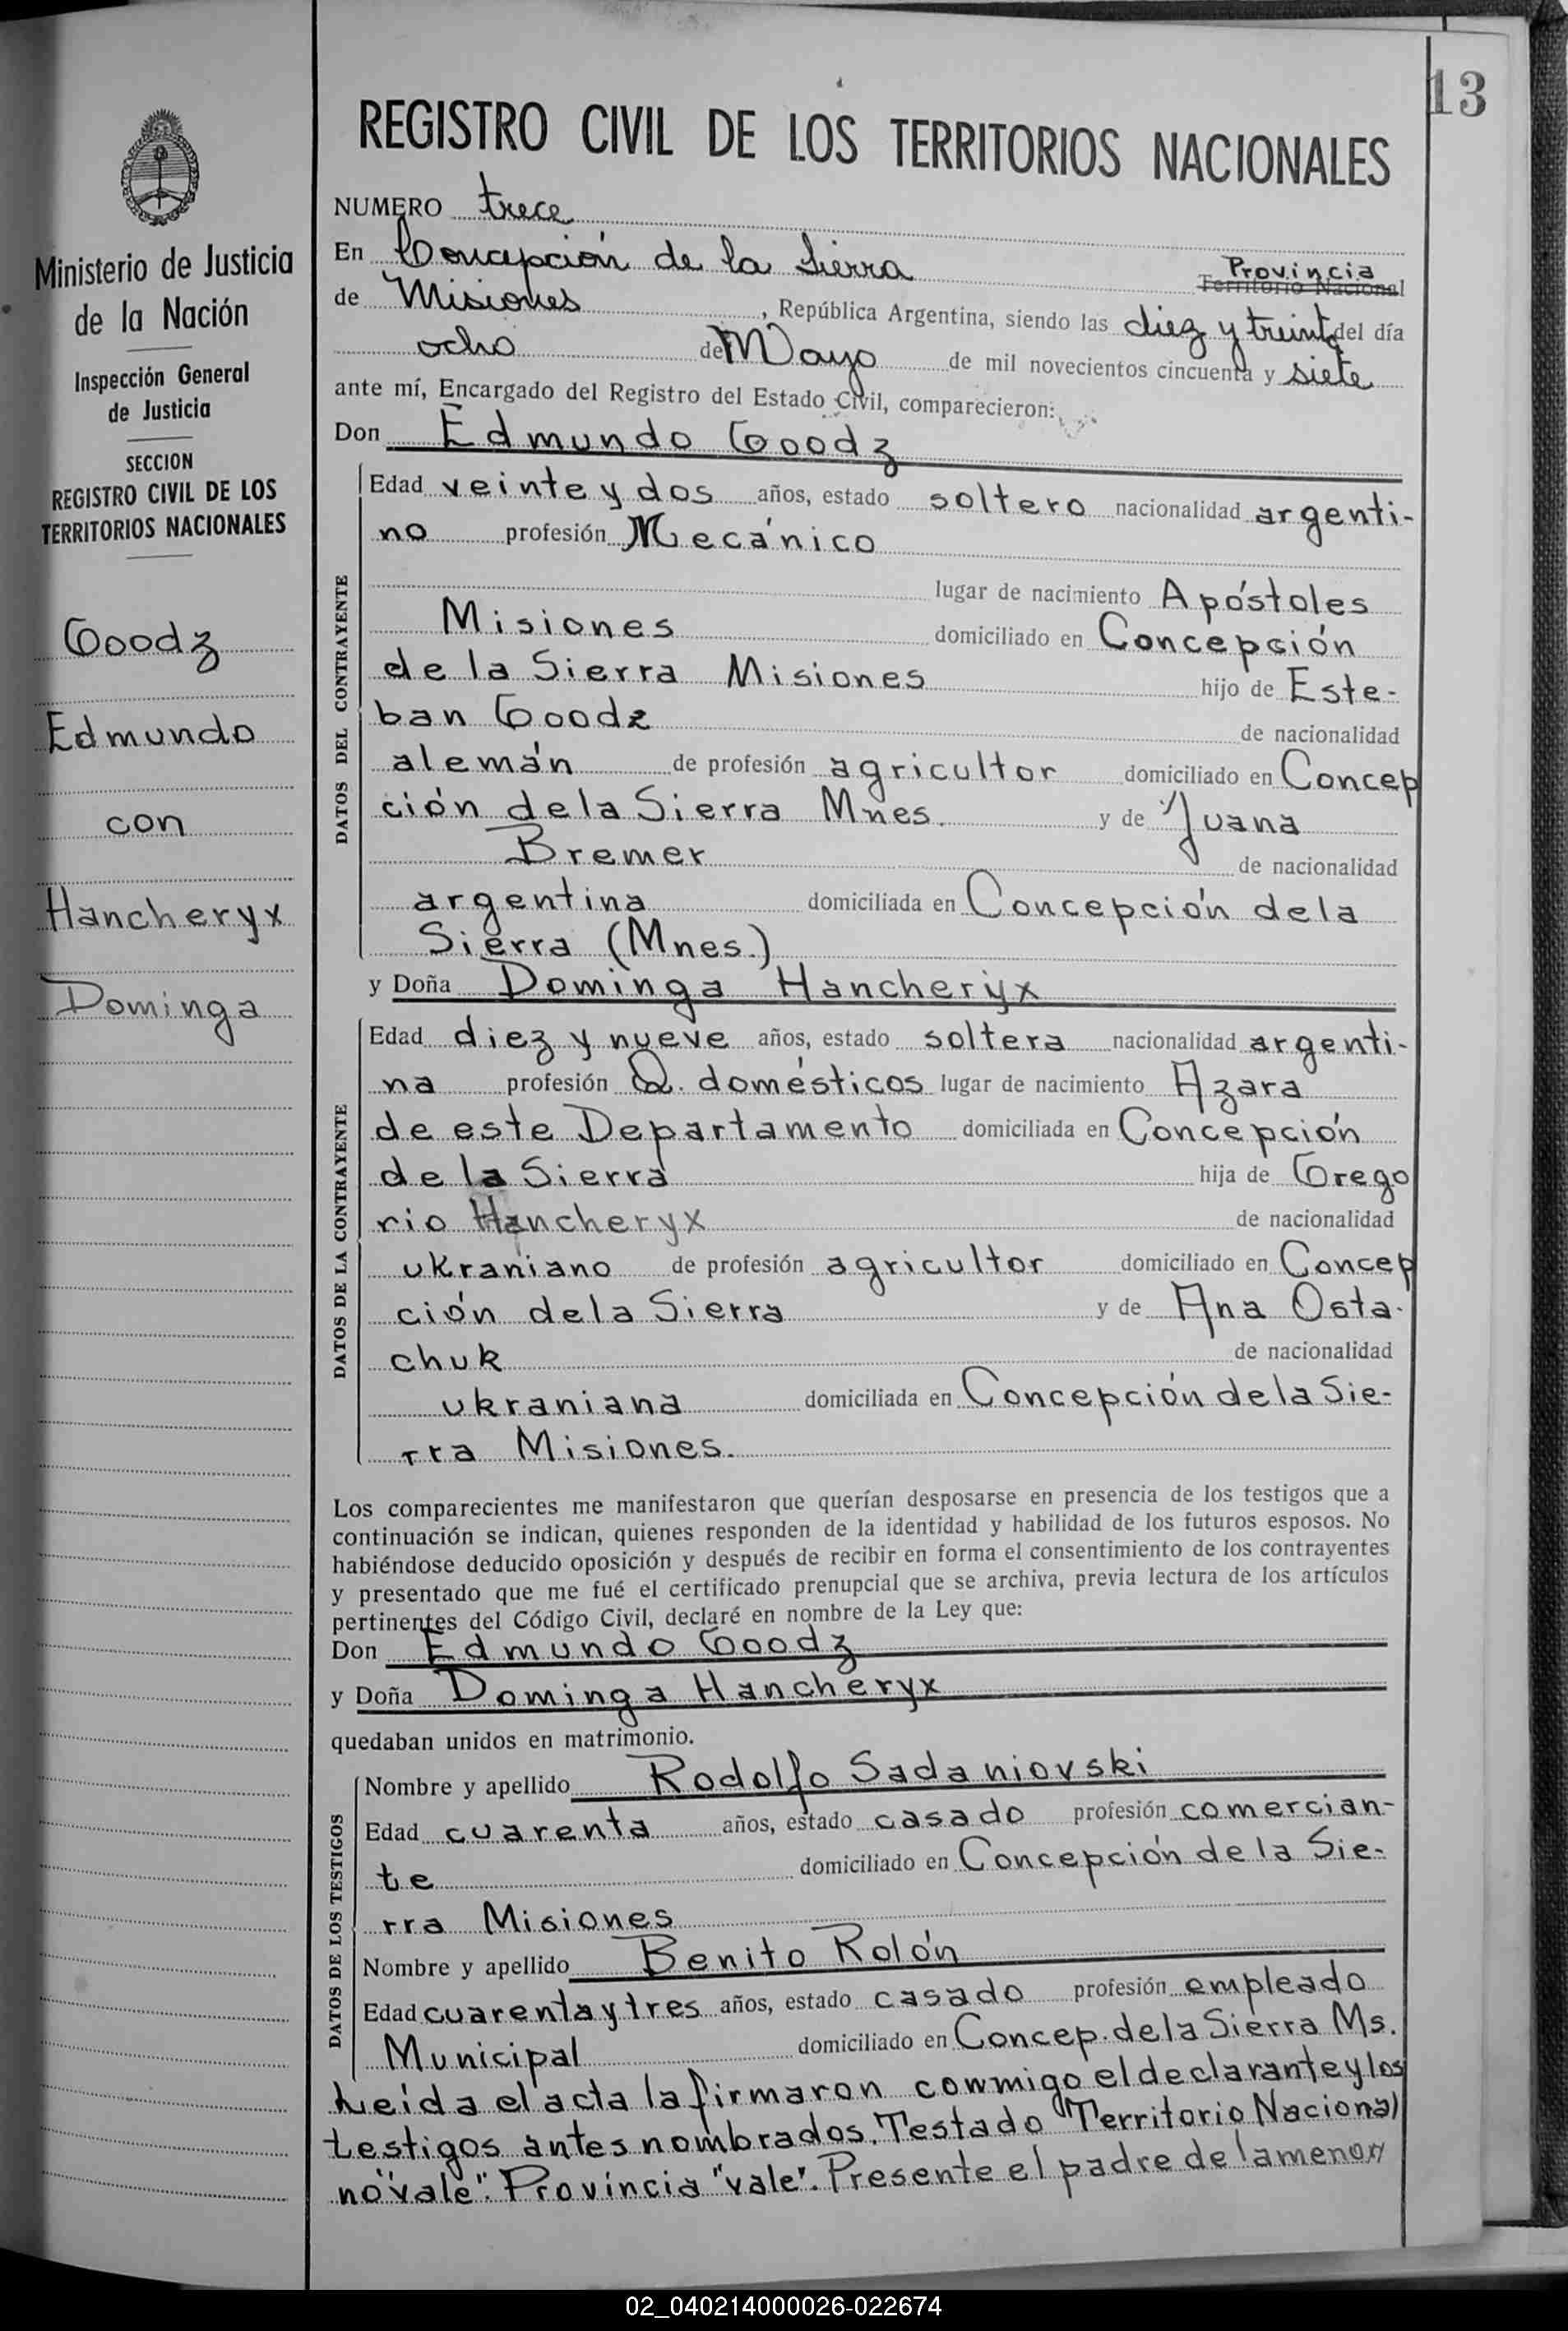 13
REGISTRO CIVIL DE LOS TERRITORIOS NACIONALES
Ministerio de Justicia
de la Nación
Inspección General
de Justicia
SECCION
REGISTRO CIVIL DE LOS
TERRITORIOS NACIONALES
Goodz
Edmundo
con
Hancheryx
Dominga
NUMERO trece
En Concepción de la Sierra Provincia Territorio Nacional
de Misiones, República Argentina, siendo las diez y treinta del día
ocho de Mayo de mil novecientos cincuenta y siete
ante mí, Encargado del Registro del Estado Civil, comparecieron:
Don Edmundo Goodz
DATOS DEL CONTRAYENTE
Edad veinte y dos años, estado soltero nacionalidad argenti-
no profesión Mecánico
lugar de nacimiento Apóstoles
Misiones domiciliado en Concepción
de la Sierra Misiones hijo de Este-
ban Goodz de nacionalidad
alemán de profesión agricultor domiciliado en Concep
ción de la Sierra Mnes. y de Juana
Bremer de nacionalidad
argentina domiciliada en Concepción de la
Sierra (Mnes.)
y Doña Dominga Hancheryx
DATOS DE LA CONTRAYENTE
Edad diez y nueve años, estado soltera nacionalidad argenti-
na profesión Q. domésticos lugar de nacimiento Azara
de este Departamento domiciliada en Concepción
de la Sierra hija de Grego
rio Hancheryx de nacionalidad
ukraniano de profesión agricultor domiciliado en Concep
ción de la Sierra y de Ana Osta-
chuk de nacionalidad
ukraniana domiciliada en Concepción de la Sie-
rra Misiones.
Los comparecientes me manifestaron que querían desposarse en presencia de los testigos que a
continuación se indican, quienes responden de la identidad y habilidad de los futuros esposos. No
habiéndose deducido oposición y después de recibir en forma el consentimiento de los contrayentes
y presentado que me fué el certificado prenupcial que se archiva, previa lectura de los artículos
pertinentes del Código Civil, declaré en nombre de la Ley que:
Don Edmundo Goodz
y Doña Dominga Hancheryx
quedaban unidos en matrimonio.
DATOS DE LOS TESTIGOS
Nombre y apellido Rodolfo Sadaniovski
Edad cuarenta años, estado casado profesión comercian-
te domiciliado en Concepción de la Sie-
rra Misiones
Nombre y apellido Benito Rolón
Edad cuarenta y tres años, estado casado profesión empleado
Municipal domiciliado en Concep. de la Sierra Ms.
Leida el acta la firmaron conmigo el declarante y los
testigos antes nombrados. Testado "Territorio Nacional
no "vale". Provincia "vale". Presente el padre de la menor//
02_040214000026-022674